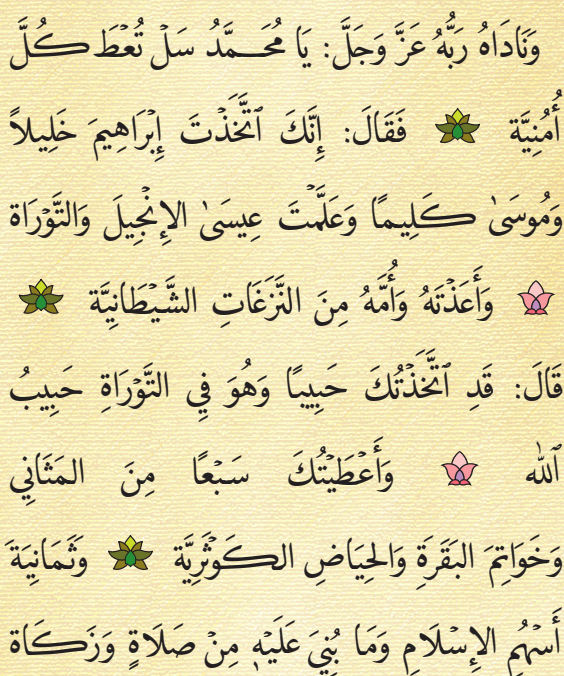 وَنَادَاهُ رَبُّهُ عَزَّ وَجَلَّ: يَا مُحَمَّدُ سَلْ تُعْطَ كُلَّ
أُمْنِيَّة فَقَالَ: إِنَّكَ ٱتَّخَذْتَ إِبْرَاهِيمَ خَلِيلاً
وَمُوسَىٰ كَلِيمًا وَعَلَّمْتَ عِيسَىٰ الإِنْجِيلَ وَالتَّوْرَاة
وَأَعَذْتَهُ وَأُمَّهُ مِنَ النَّزَغَاتِ الشَّيْطَانِيَّة
قَالَ: قَدِ ٱتَّخَذْتُكَ حَبِيبًا وَهُوَ فِي التَّوْرَاةِ حَبِيبُ
ٱللّٰه وَأَعْطَيْتُكَ سَبْعًا مِنَ المَثَانِي
وَخَوَاتِمَ البَقَرَةِ وَالحِيَاضِ الكَوْثَرِيَّة وَثَمَانِيَةَ
أَسْهُمِ الإِسْلَامِ وَمَا بُنِيَ عَلَيْهِ مِنْ صَلَاةٍ وَزَكَاة